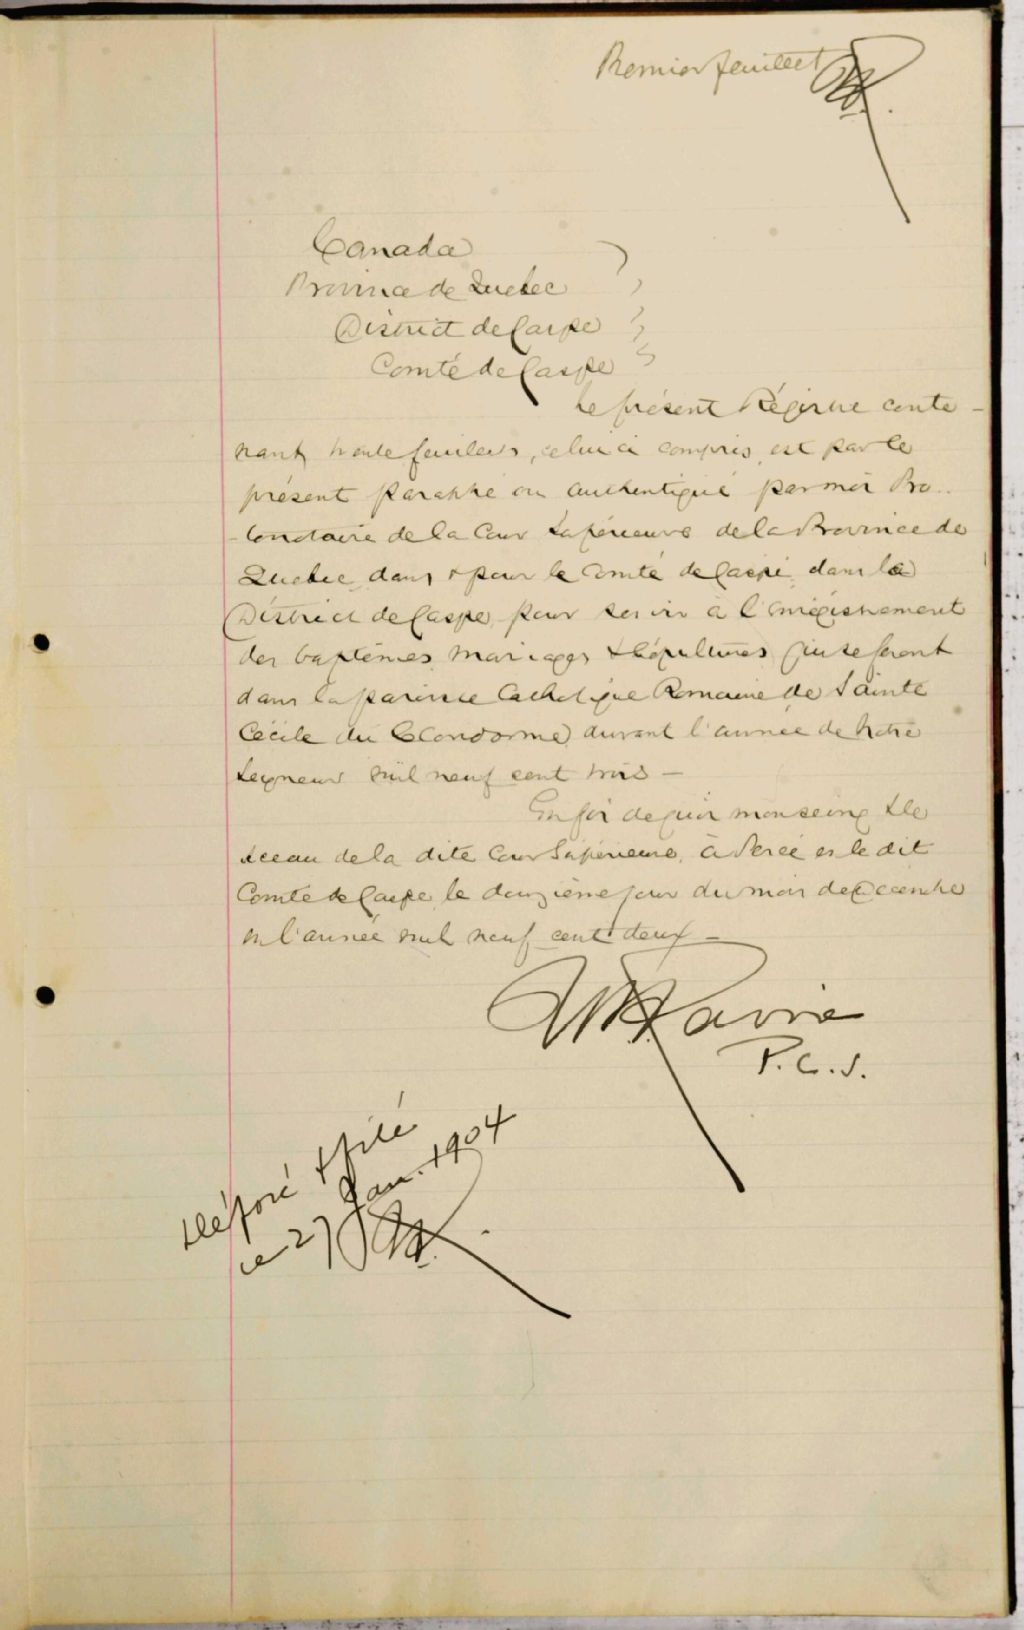 Premier feuillet
Canada
Province de Quebec
District de Gaspe
Comté de Gaspe
Le présent Régistre conte-
nant trente feuillets, celui ci compris, est par le
présent paraphé ou authentiqué par moi Pro..
-tonotaire de la Cour Supérieure de la Province de
Quebec dans & pour le Comté de Gaspé, dans le
District de Gaspe, pour servir à l'enrégistrement
des baptêmes, mariages & sépultures qui se feront
dans la paroisse Catholique Romaine de Sainte
Cécile du Cloridorme durant l'année de Notre
Seigneur mil neuf cent trois —
En foi de quoi mon seing & le
sceau de la dite Cour Supérieure, à Percé en le dit
Comté de Gaspe, le douzième jour du mois de Décembre
en l'année mil neuf cent deux —
P.C.S.
Déposé & filé
ce 27 Jan. 1904